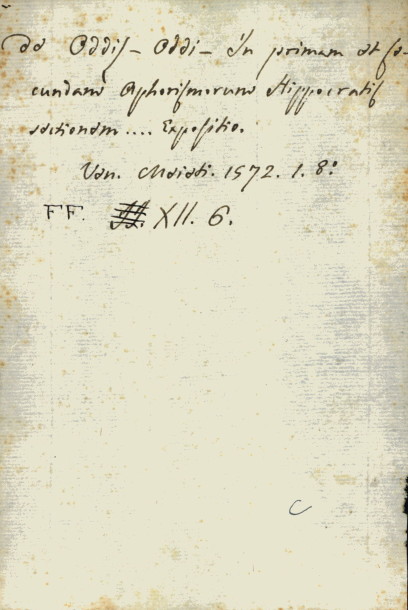 De Oddis – Oddi – In primam et se-
cundam Aphorismorum Hippocratis
sectionem .... Expositio.
Ven. Maieti. 1572. 1. 8º
FF. XII. 6.
C